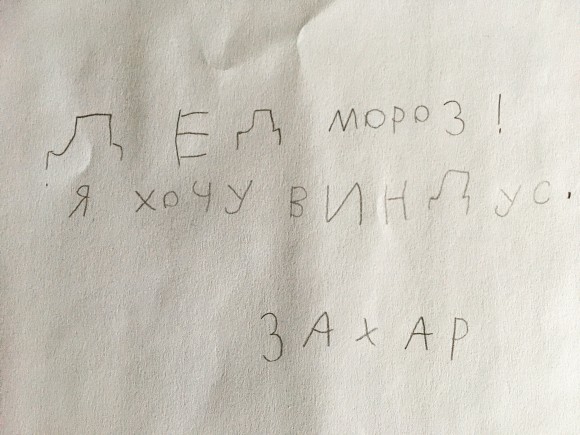 ДЕД МОРОЗ!
Я ХОЧУ ВИНДУС.
ЗАХАР